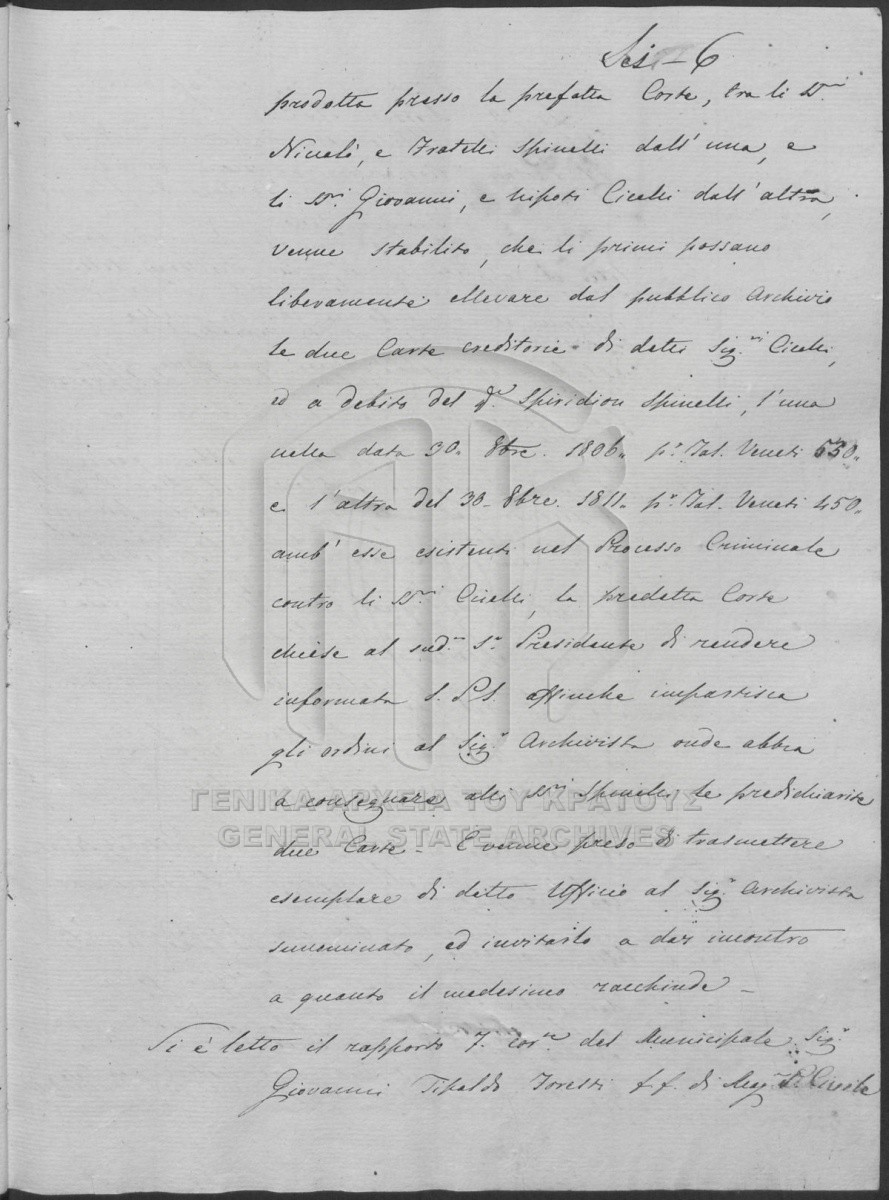 Sei - 6
prodotta presso la prefatta Corte, tra li SS.ri
Nicolò, e Fratelli Spinelli dall' una, e
li SS.ri Giovanni, e Nipoti Cicelli dall' altra,
venne stabilito, che li primi possano
liberamente ellevare dal pubblico Archivio
le due Carte creditorie di detti Sig.ri Cicelli,
ed a debito del q.r Spiridion Spinelli, l'una
nella data 30. 8bre. 1806. p.r Tal. Veneti 530.
e l'altra del 30. 8bre. 1811. p.r Tal. Veneti 450.
amb' esse esistenti nel Processo Criminale
contro li SS.ri Cicelli, la predetta Corte
chiese al sud.o S.r Presidente di rendere
informata S. P. S. affinche impartisca
gli ordini al Sig.r Archivista onde abbia
a consegnare alli SS.ri Spinelli le predichiarite
due Carte - E venne preso di trasmettere
esemplare di detto Ufficio al Sig.r Archivista
sunominato, ed invitarlo a dar incontro
a quanto il medesimo racchiude -
Si è letto il rapporto 7. cor.te del Municipale Sig.r
Giovanni Tipaldo Foresti f.f. di
ΓΕΝΙΚΑ ΑΡΧΕΙΑ ΤΟΥ ΚΡΑΤΟΥΣ
GENERAL STATE ARCHIVES